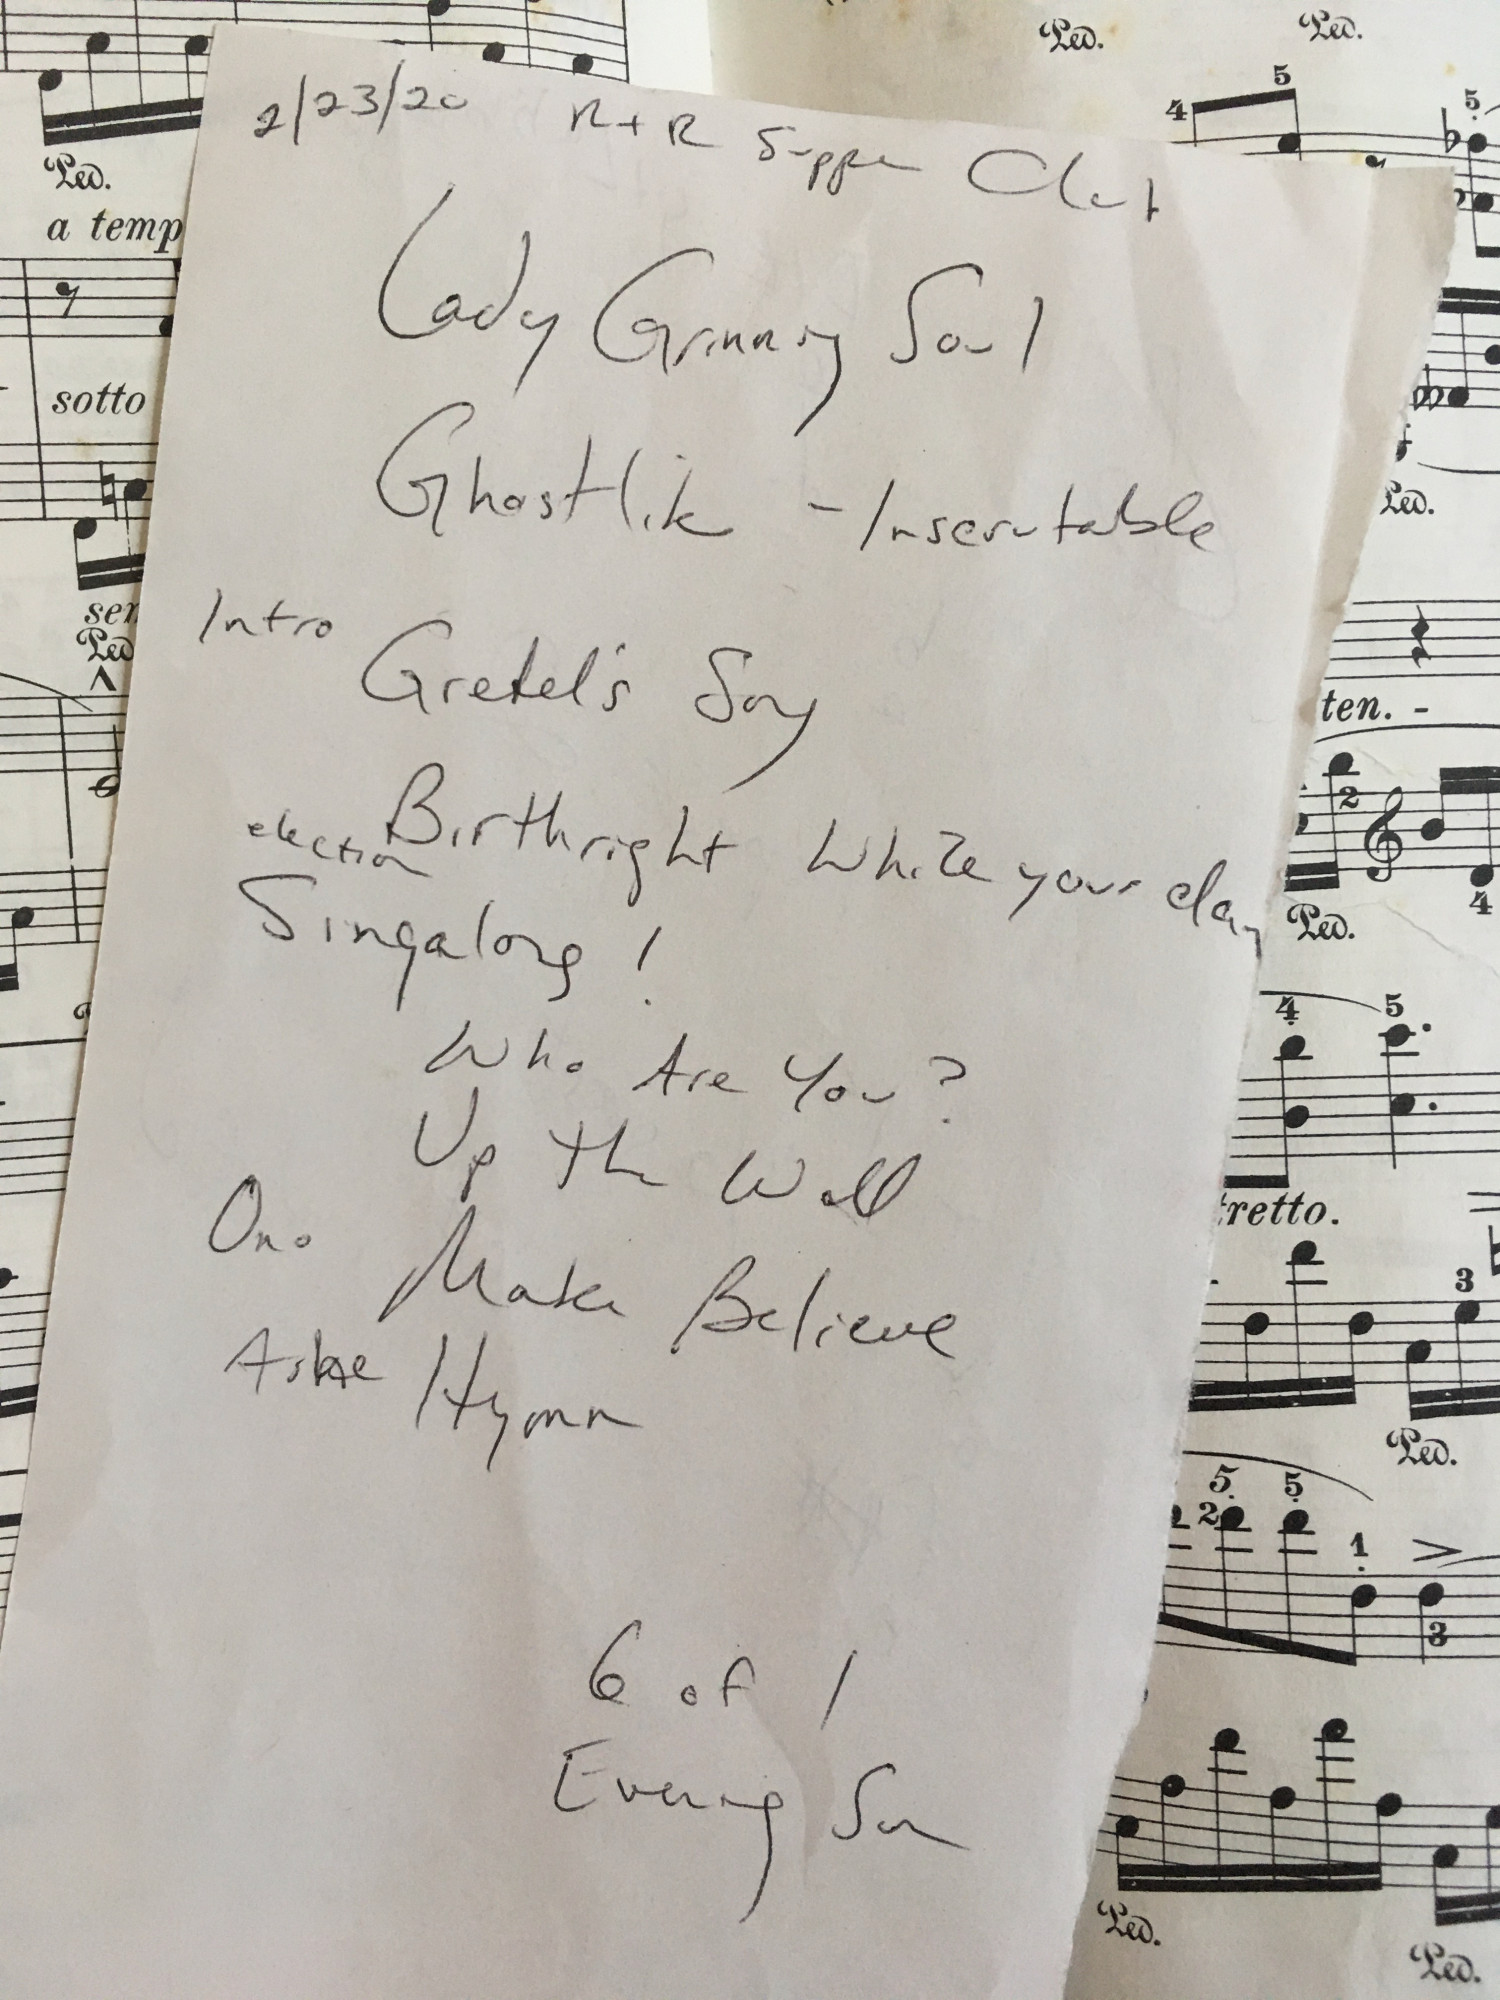 2/23/20 R+R Supper Club
Lady Grinning Soul
Ghostlike - Inscrutable
Intro Gretel's Song
election Birthright While your clay
Singalong!
Who Are You?
Up the Wall
Ono Make Believe
Hymn
6 of 1
Evening Sun
Ped.
Ped.
Ped.
a temp
sotto
sen
Ped
5
4
5
Ped.
ten. -
2
4
Ped.
4 5
tretto.
3
Ped.
5 5
2
1
3
Ped.
Ped.